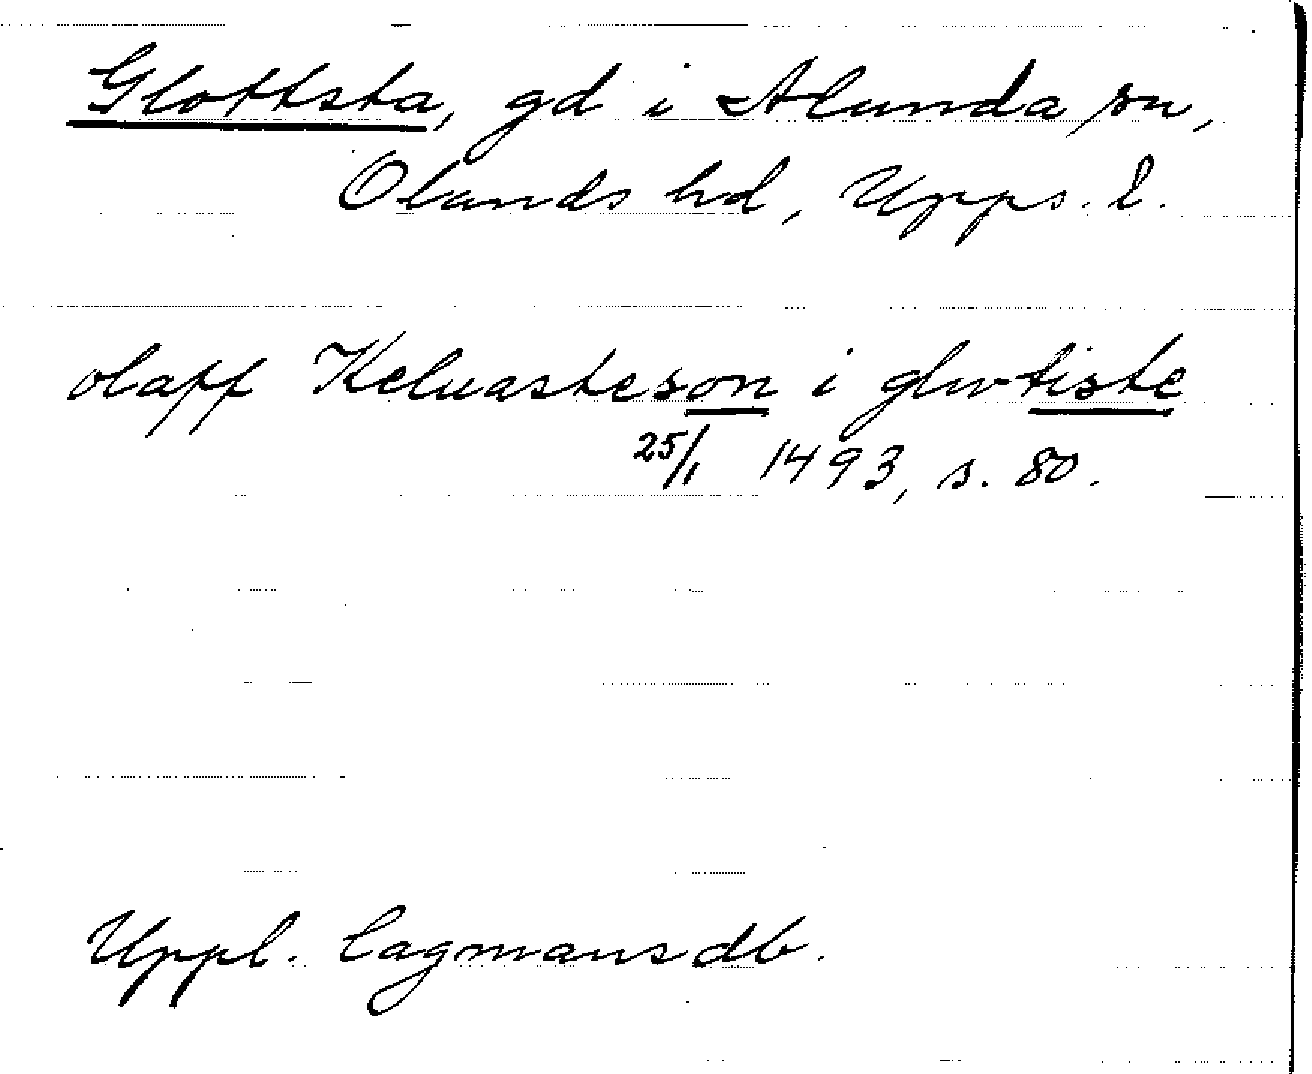 Glottsta, gd i Alunda sn,
Olands hd, Upps. l.
olaff Keluasteson i glwtiste
25/1 1493, s. 80.
Uppl. lagmansdb.